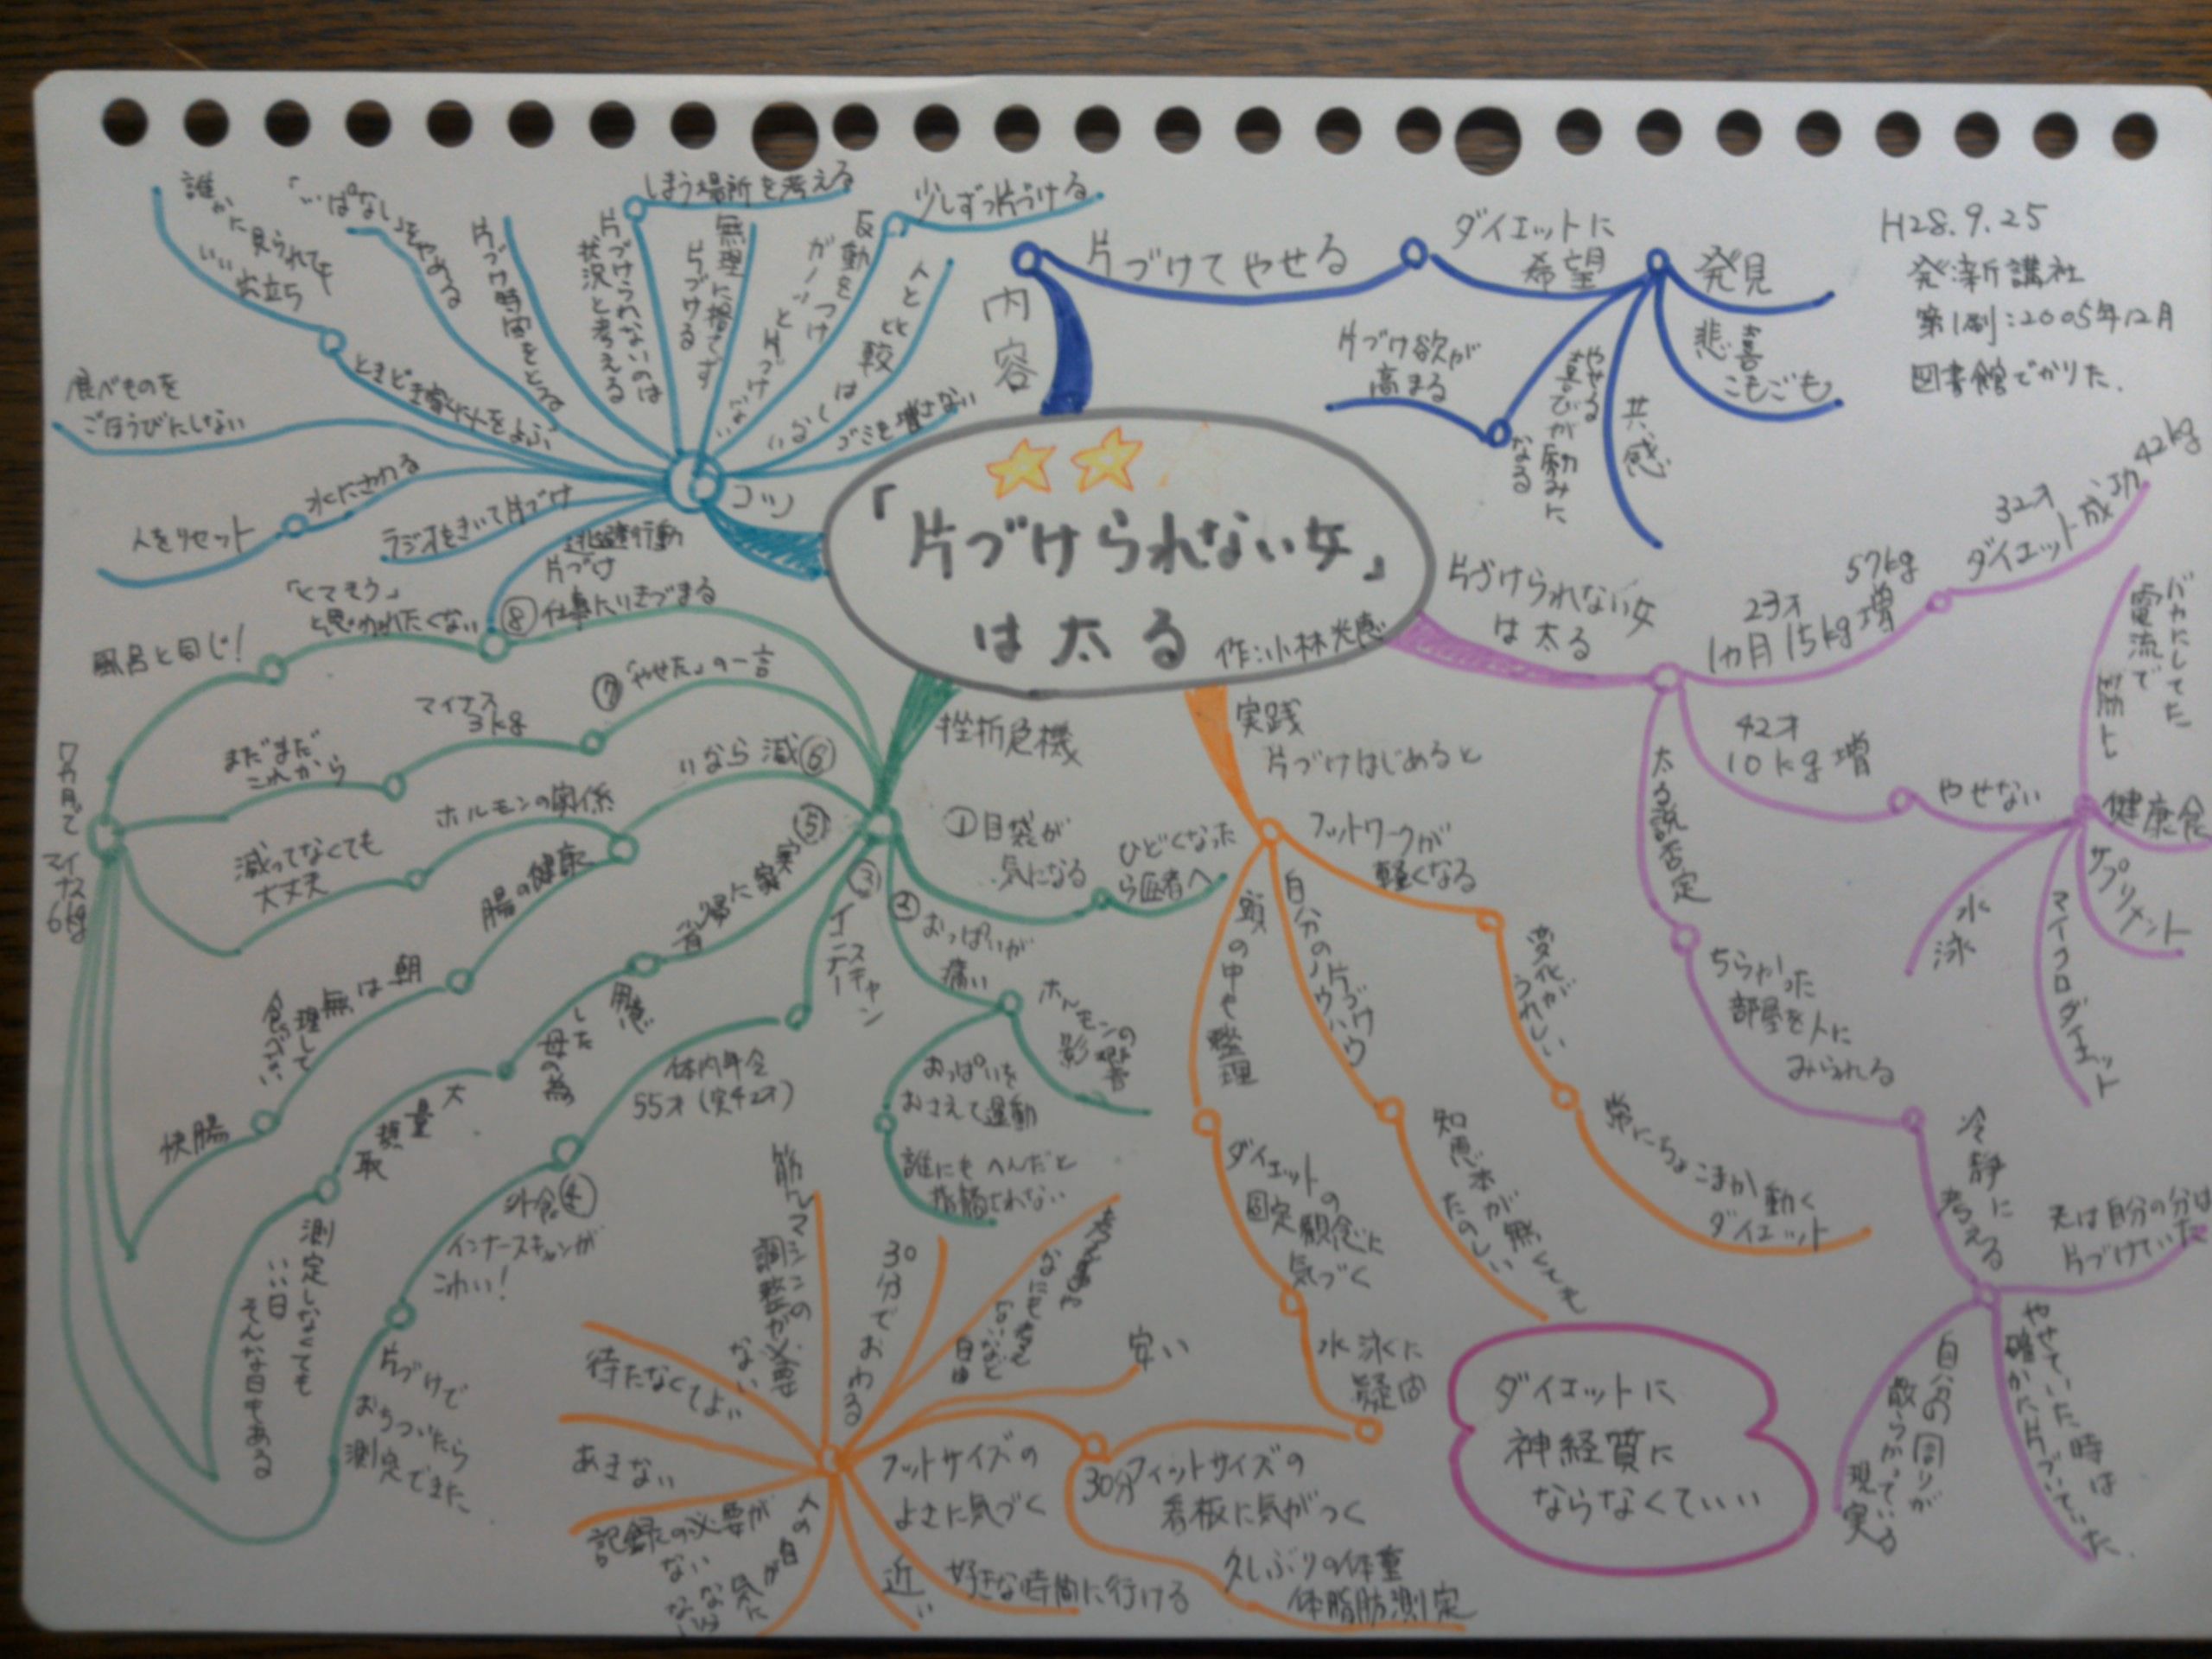 「片づけられない女」
は太る
作:小林光恵
H28.9.25
発:新講社
第1刷:2005年12月
図書館でかりた.
内容
片づけてやせる
ダイエットに
希望
発見
悲喜
こもごも
共感
やせる
喜びが励みに
なる
片づけ欲が
高まる
片づけられない女
は太る
23才
1カ月15kg増
57kg
32才
ダイエット成功
42kg
42才
10kg増
やせない
バカにしてた
電流で
筋トレ
健康食
サプリメント
マイクロダイエット
水泳
太る説否定
ちらかった
部屋を人に
みられる
冷静に
考える
夫は自分の分は
片づけていた
やせていた時は
確かに片づいていた.
自分の回りが
散らかっている
現実
実践
片づけはじめると
フットワークが
軽くなる
変化が
うれしい
常にちょこまか動く
ダイエット
自分の片づけ
ノウハウ
知恵本が無くても
たのしい
頭の中や整理
ダイエットの
固定観念に
気づく
水泳に
疑問
30分フィットサイズの
看板に気がつく
久しぶりの体重
体脂肪測定
フットサイズの
よさに気づく
安い
30分でおわる
筋トレマシンの
調整が必要
ない
待たなくてよい
あきない
記録の必要が
ない
人の目が
気に
ならない
近い
好きな時間に行ける
ダイエットに
神経質に
ならなくていい
挫折危機
①目袋が
気になる
ひどくなった
ら医者へ
②おっぱいが
痛い
ホルモンの
影響
おっぱいを
おさえて運動
誰にもへんだと
指摘されない
③インナースキャン
体内年令
55才(実42才)
④外食
インナースキャンが
こわい!
片づけで
おちついたら
測定できた
⑤実家に帰省
用意した
母の為
大量摂取
測定しなくても
いい日
そんな日もある
⑥減らない
ホルモンの関係
減ってなくても
大丈夫
腸の健康
朝は無理して
食べない
快腸
⑦「やせた」の一言
マイナス
3kg
まだまだ
これから
⑧仕事に行きづまる
「くさそう」
と思われたくない
風呂と同じ!
7カ月で
マイナス6kg
コツ
逃避行動
片づけ
ラジオをきいて片づけ
水にさわる
人をリセット
食べものを
ごほうびにしない
ときどき客人をよぶ
誰かに見られても
いい出立ち
「〃ぱなし」をやめる
片づけ時間をとる
片づけられないのは
状況と考える
しまう場所を考える
無理に捨てず
片づける
反動をつけ
ガーッと片づけ
ない
少しずつ片づける
人と比較は
しない
ゴミを増さない